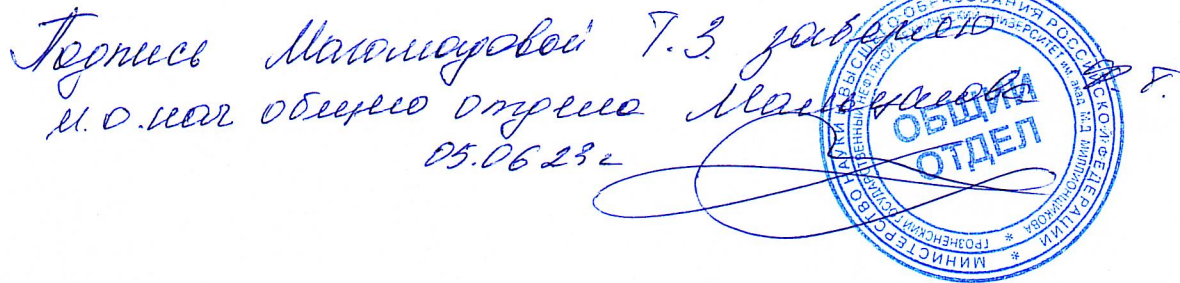 Подпись Магомадовой Т.З. заверяю
и.о.нач общего отдела
05.06 23г
МИНИСТЕРСТВО НАУКИ И ВЫСШЕГО ОБРАЗОВАНИЯ РОССИЙСКОЙ ФЕДЕРАЦИИ *
ГРОЗНЕНСКИЙ ГОСУДАРСТВЕННЫЙ НЕФТЯНОЙ ТЕХНИЧЕСКИЙ УНИВЕРСИТЕТ ИМ. АКАД. М.Д. МИЛЛИОНЩИКОВА *
ОБЩИЙ
ОТДЕЛ